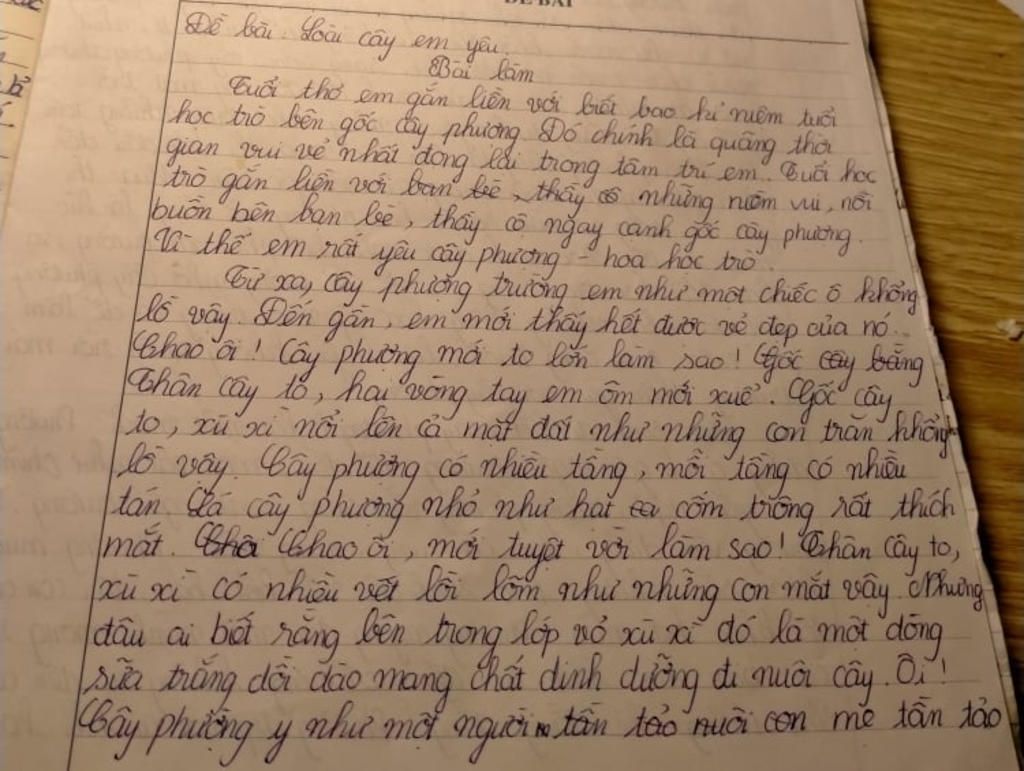 ĐỀ BÀI
Đề bài: Loài cây em yêu.
Bài làm
Tuổi thơ em gắn liền với biết bao kỉ niệm tuổi
học trò bên gốc cây phượng. Đó chính là quãng thời
gian vui vẻ nhất đọng lại trong tâm trí em. Tuổi học
trò gắn liền với bạn bè, thầy cô những niềm vui, nỗi
buồn bên bạn bè, thầy cô ngay cạnh gốc cây phượng.
Vì thế em rất yêu cây phượng - hoa học trò.
Từ xa, cây phượng trường em như một chiếc ô khổng
lồ vậy. Đến gần, em mới thấy hết được vẻ đẹp của nó.
Chao ôi! Cây phượng mới to lớn làm sao! Gốc cây bằng
Thân cây to, hai vòng tay em ôm mới xuể. Gốc cây
to, xù xì nổi lên cả mặt đất như những con trăn khổng
lồ vậy. Cây phượng có nhiều tầng, mỗi tầng có nhiều
tán. Lá cây phượng nhỏ như hạt cốm trông rất thích
mắt. Chao ôi, mới tuyệt vời làm sao! Thân cây to,
xù xì có nhiều vết lồi lõm như những con mắt vậy. Nhưng
đâu ai biết rằng bên trong lớp vỏ xù xì đó là một dòng
sữa trắng dồi dào mang chất dinh dưỡng đi nuôi cây. Ôi!
Cây phượng y như một người tần tảo nuôi con mẹ tần tảo